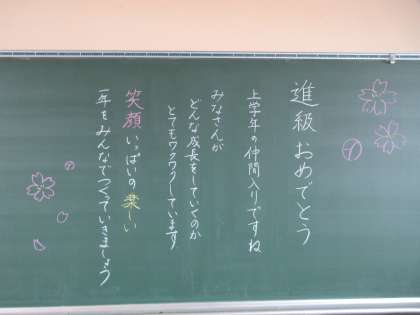 進級おめでとう
上学年の仲間入りですね
みなさんが
どんな成長をしていくのか
とてもワクワクしています
笑顔いっぱいの楽しい
一年をみんなでつくっていきましょう